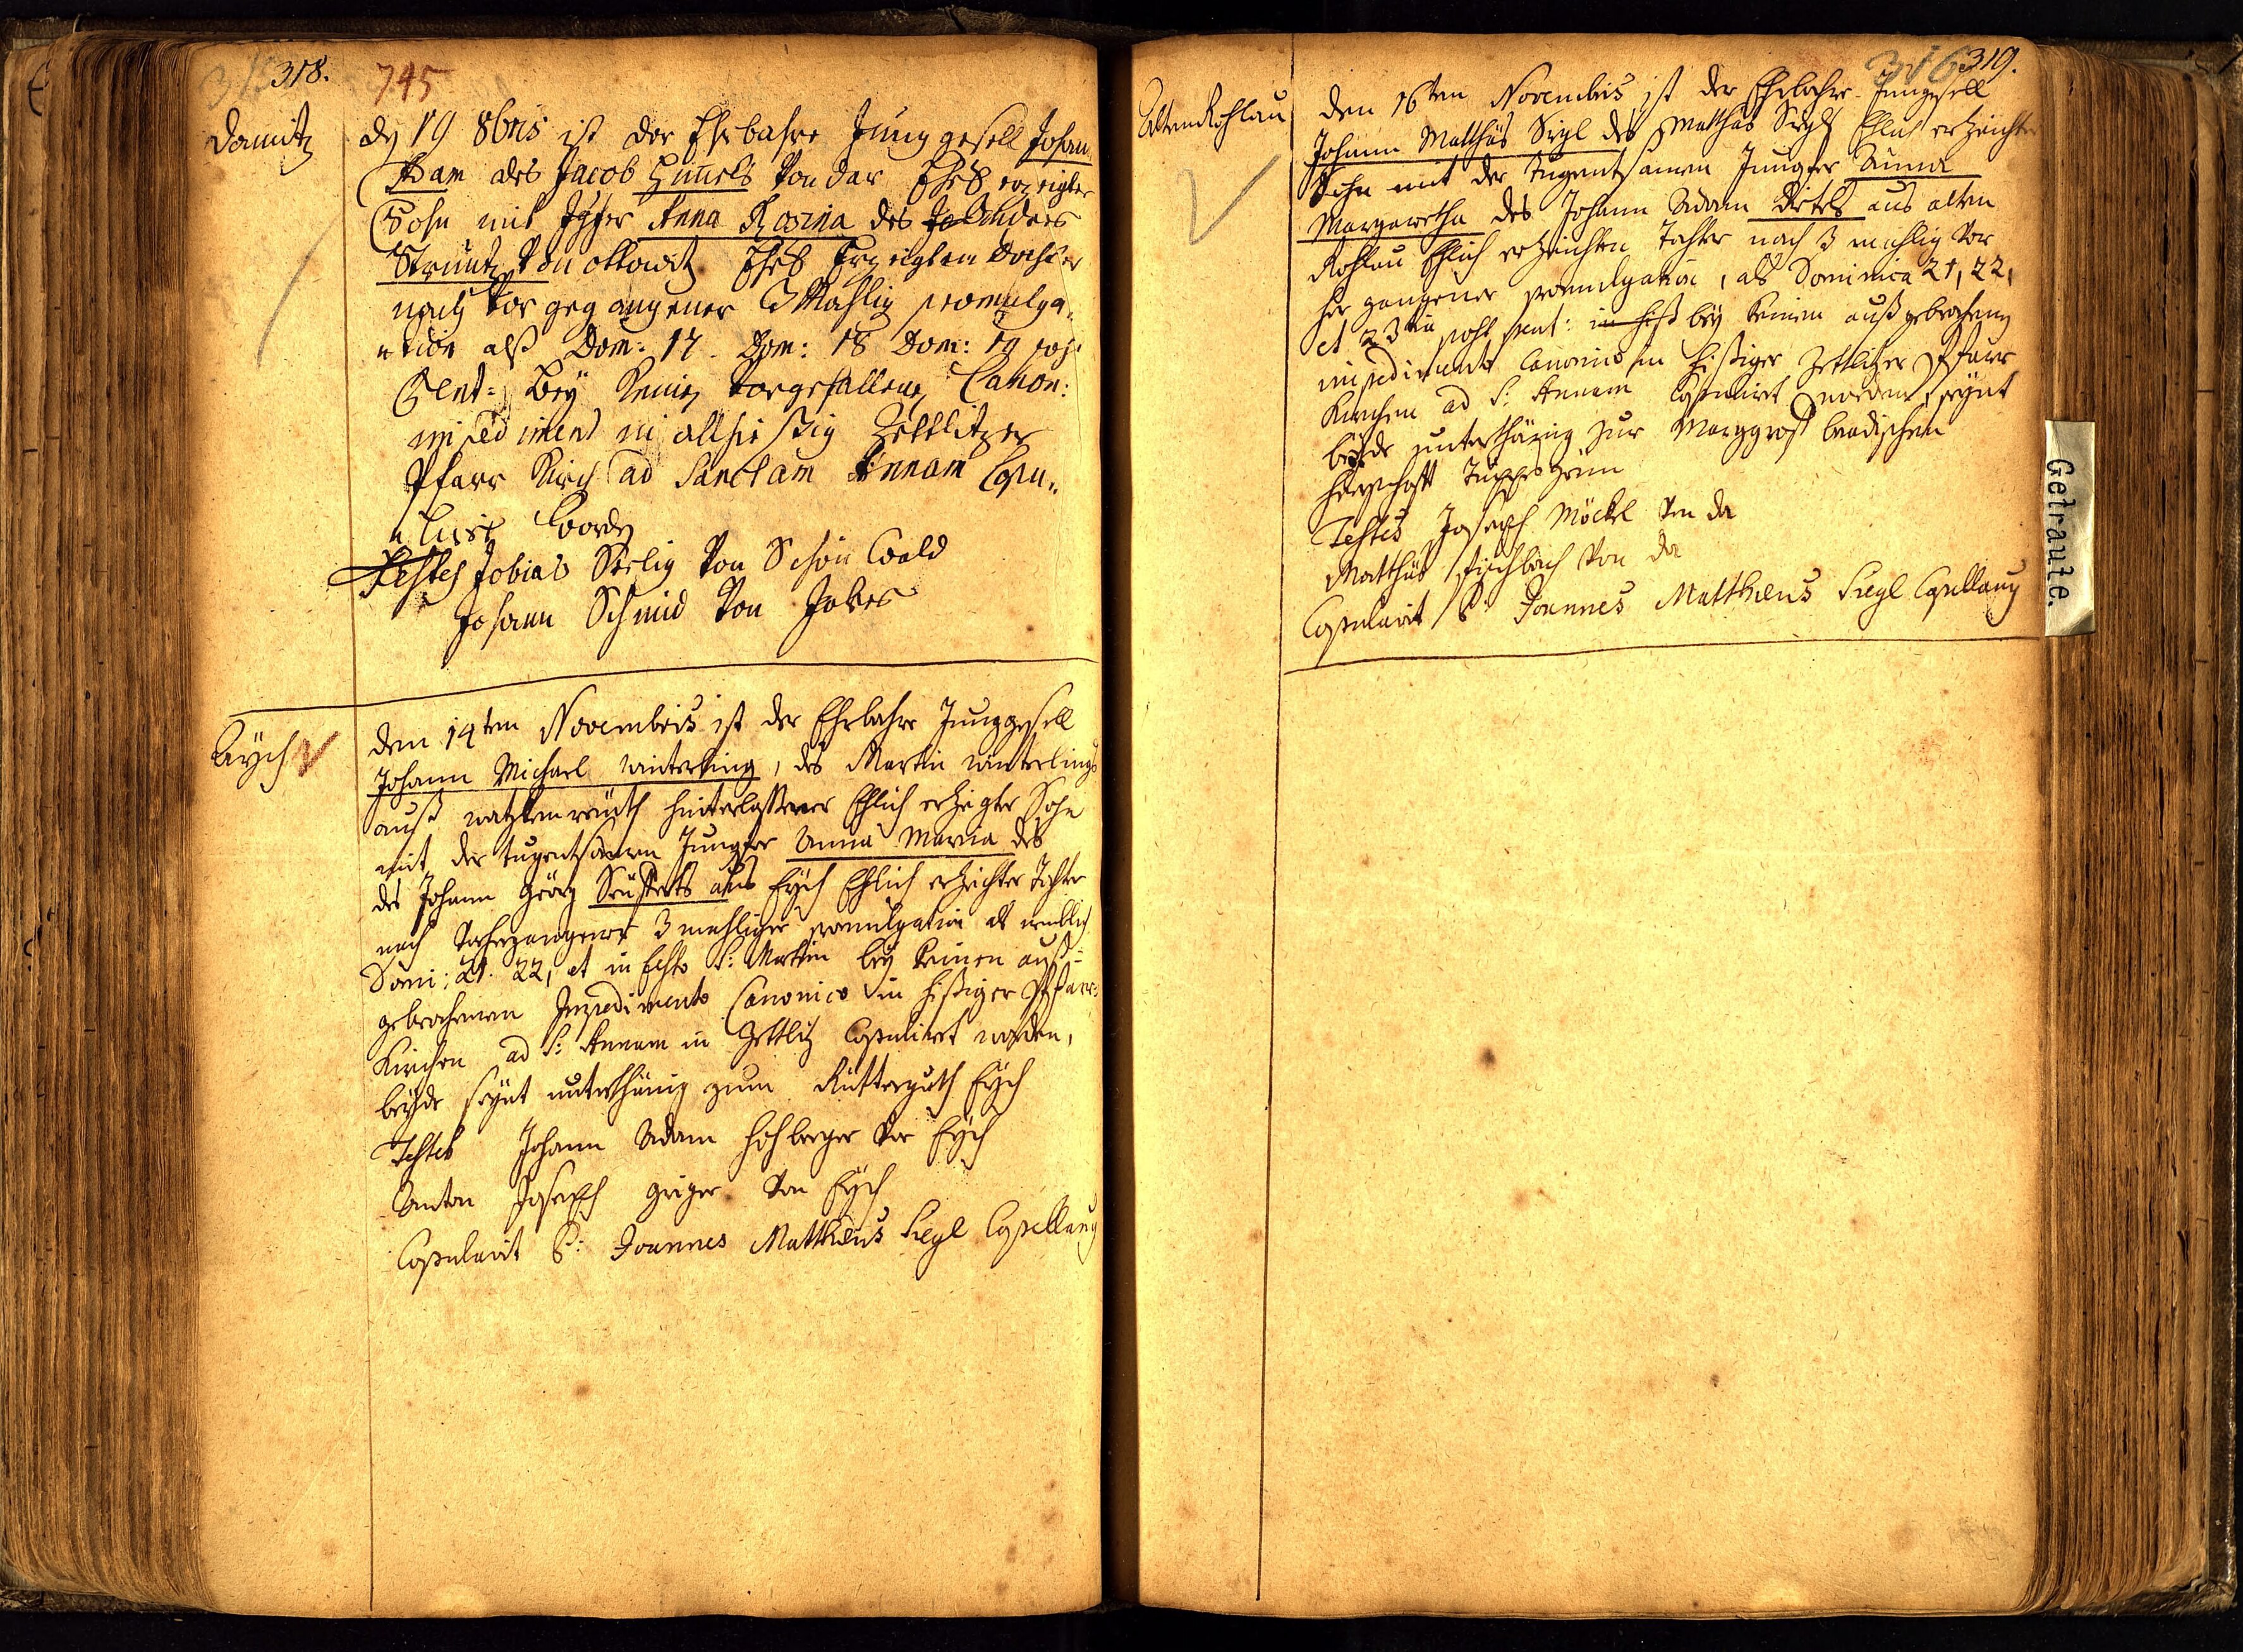 318.
745
Damitz
dẏ 19 8bris ist der Ehrbahre Jung gesell Johan
Adam des Jacob Hum̄els Von dar Ehel. erzeigter
Sohn mit Jgfer Anna Rosina des Andres
Struntz Von ottowitz Ehel. Erzeigten Dochter
nach vor gegangener 3 Mahlig promulga„
„tion alß Dom: 17. Dom: 18 Dom: 19 post
Pent: Beÿ Keine vorgefallene Canon:
impediment in allhiesig Zettlitzer
Pfarr Kirch ad Sanctam Annam Copu„
„lirt word
Testes Tobias Seelig Von Schön Wald
Johann Schmid Von Jokes
Aÿch
Den 14ten Novembris ist der Ehrbahre Junggesell
Johann Michael winterling, des Martin winterlings
auß watzkenreüth hinterlassener Ehlich erzeigter Sohn
mit der tugentsamen Jungfer Anna Maria des
des Johann Görg aus Eÿch Ehlich erzeichter Tochter
nach Vorhergangener 3 mahliger promulgation als nemblich
Domi: 21. 22, et in Festo S: Martin beÿ Keinen auß„
gebrochenen Impedimento Canonico in hisiger Pfarr„
Kirchen ad S: Annam in Zettlitz Copulirt worden,
beÿde seÿnt unterthänig zum Rütterguth Eÿch
Testes Johann Adam Hochberger Von Eÿch
Anton Joseph geiger Von Eÿch
Copulavit P: Joannes Matthæus Siegl Capellanꝯ
316 319.
Alten Rohlau
Den 16ten Novembris ist der Ehrbahre Junggesell
Johann Matthäs Sigl des Matthäs Sigls Ehlich erzeichter
Sohn mit der Tugentsamen Jungfer Anna
Margaretha des Johann Adam Dietls aus alten
Rohlau Ehlich erzeichten Tochter nach 3 mahlig Vor
her gangener promulgation, als Dominica 21, 22,
et 23tia post pent: beÿ Keinem außgebrochenen
impedimento Canonico in hisiger Zettlitzer Pfarr
Kirchen ad S: Annam Copulirt worden, seÿnt
beÿde unterthänig zur Marggraff badischen
Herrschafft Tüppesgrün
Testes Joseph Möckel Von da
Matthäs fischbach Von da
Copulavit P: Joannes Matthæus Siegl Capellanꝯ
Getraute.